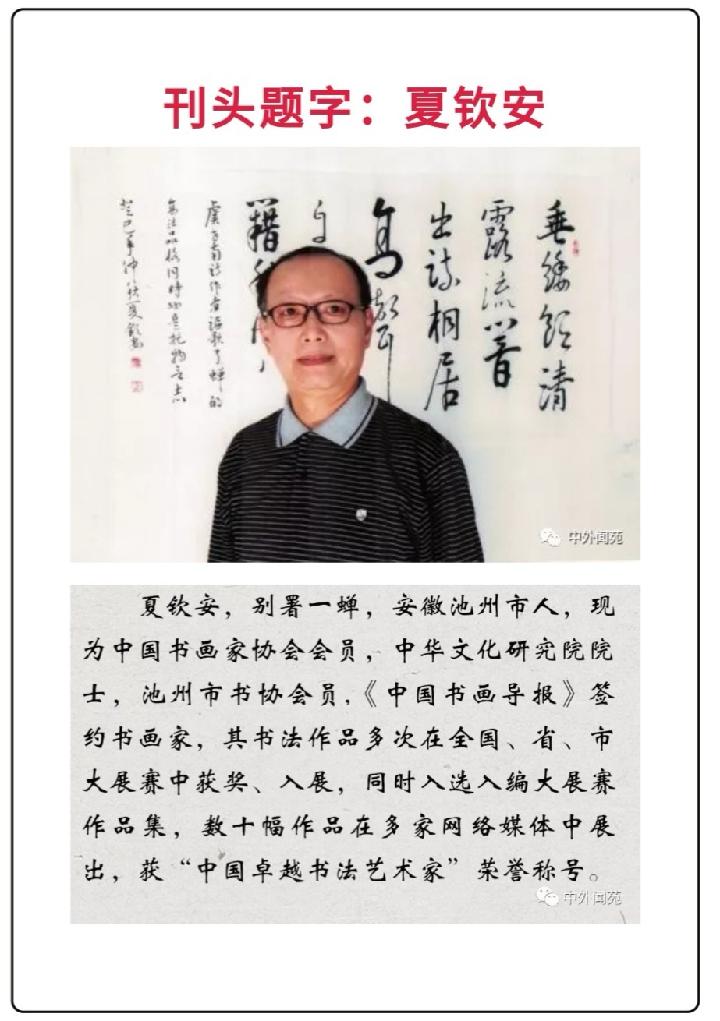 刊头题字：夏钦安
垂緌饮清
露流响
出疏相居
高声
自
藉秋风
虞世南诗作者讴歌了蝉的
高洁品格同时也是托物言志
癸巳年仲秋夏钦安
中外闻苑
夏钦安，别署一蝉，安徽池州市人，现
为中国书画家协会会员，中华文化研究院院
士，池州市书协会员，《中国书画导报》签
约书画家，其书法作品多次在全国、省、市
大展赛中获奖、入展，同时入选入编大展赛
作品集，数十幅作品在多家网络媒体中展
出，获“中国卓越书法艺术家”荣誉称号。
中外闻苑